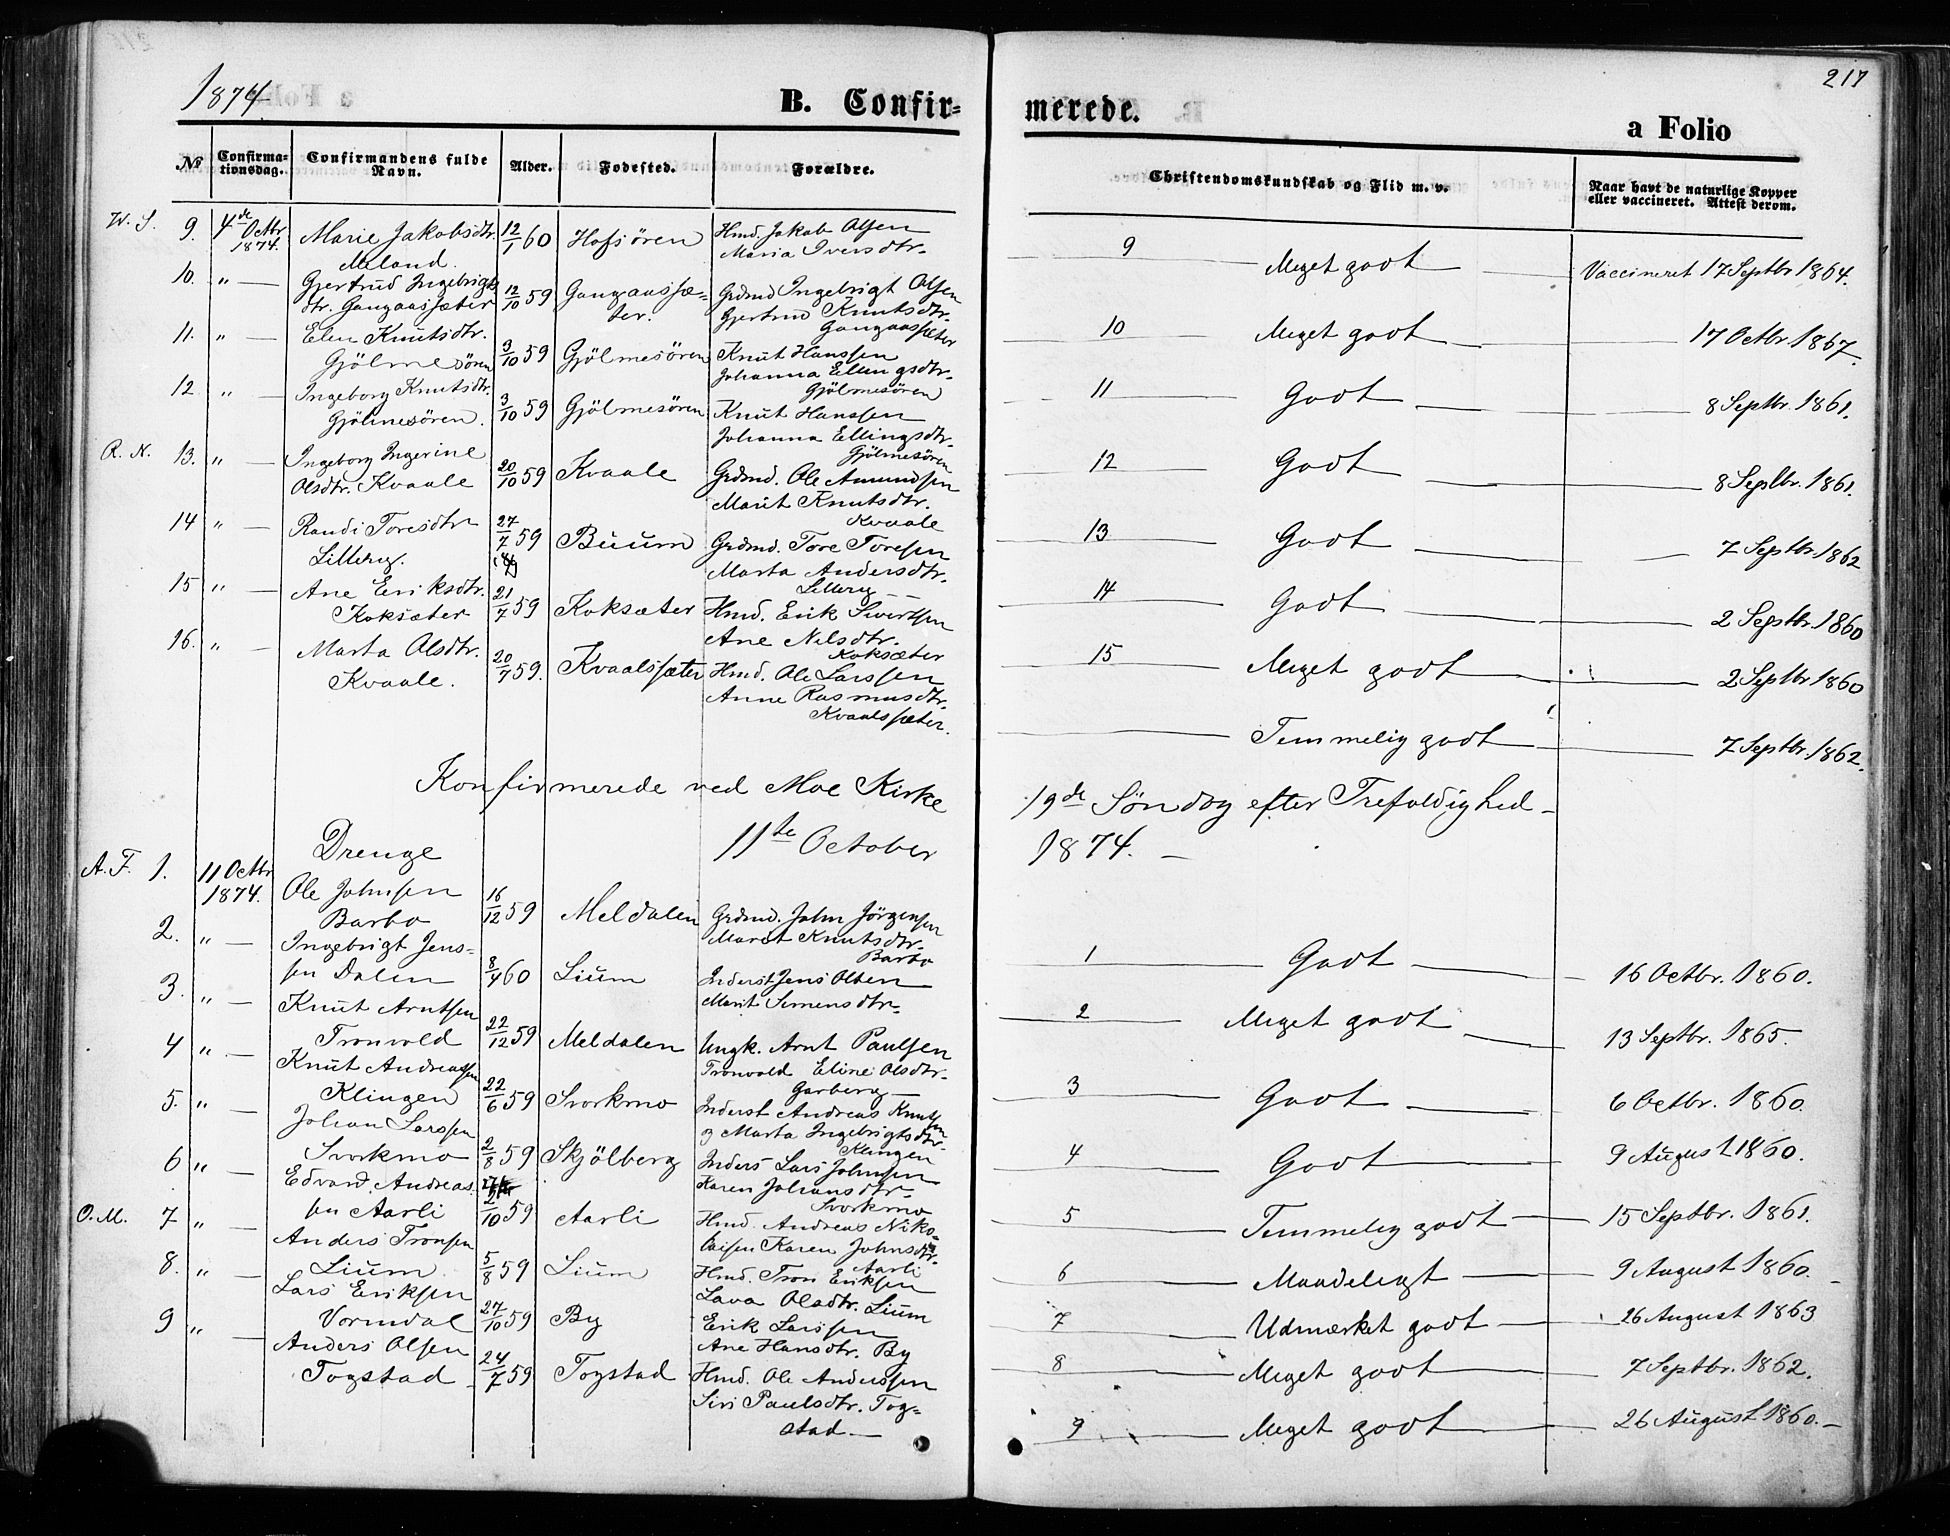 1874
B. Confir-
№
Confirma-
tionsdag.
Confirmandens fulde
Navn.
Alder.
Fødested.
Forældre.
W. S. 9. 4de Octbr 1874. Marie Jakobsdtr. 12/1 60 Hofsören Hmd. Jakob Olsen
Meland. Maria Iversdtr.
10. " Gjertrud Ingebrigts 12/10 59 Gangaassæ= Grdmd Ingebrigt Olsen
dtr. Gangaassæter ter. Gjertrud Knutsdtr.
Gangaassæter
11. " Elen Knutsdtr. 3/10 59 Gjölmesören Knut Hanssen
Gjölmesören Johanna Ellingsdtr.
Gjölmesören
12 " Ingeborg Knutsdtr. 3/10 59 Gjölmesören Knut Hanssen
Gjölmesören. Johanna Ellingsdtr.
Gjölmesören
R. N. 13. " Ingeborg Ingerine 20/10 59 Kvaale Grdmd. Ole Amundsen
Olsdtr. Kvaale Marit Knutsdtr.
Kvaale
14 " Randi Toresdtr 27/7 59 Buum Grdmd. Tore Toresen
Lillerug. Marta Andersdtr.
15 " Ane Eriksdtr. 21/7 59 Koksæter Hmd. Erik Sivertsen
Koksæter Ane Nilsdtr.
Koksæter
16. " Marta Olsdtr. 20/7 59. Kvaalssæter Hmd. Ole Larssen
Kvaale. Anne Rasmusdtr.
Kvaalssæter.
Konfirmerede ved Moe Kirke
11te October
Drenge
A. F. 1. 11 Octbr 1874. Ole Johnsen 16/12 59 Meldalen Grdmd. John Jörgensen
Barbo Marit Knutsdtr.
Barbo
2. " Ingebrigt Jens= 8/4 60 Lium Inderst Jens Olsen
sen Dalen Marit Simensdtr.
3. " Knut Arntsen 22/12 59 Meldalen Ungk. Arnt Paulsen
Tronvold Tronvold Eline Olsdtr.
Garberg
4 " Knut Andreassen 22/6 59 Svorkmo Inderst Andreas Knutsen
Klingen og Marta Ingebrigtsdtr.
Klingen
5. " Johan Larssen 2/8 59 Skjölberg Inders Lars Johnsen
Svorkmo Karen Johansdtr.
Svorkmo
6 " Edvard Andreas 2/10 59 Aarli Hmd. Andreas Niko-
sen Aarli laisen Karen Johnsdtr.
Aarli
O. M. 7 " Anders Tronsen 5/8 59 Lium Hmd. Tron Eriksen
Lium Lava Olsdtr. Lium
8. " Lars Eriksen 27/10 59 By Erik Larssen
Vormdal Ane Hansdtr. By
9 " Anders Olsen 24/7 59 Togstad Hmd. Ole Anderssen
Togstad Siri Paulsdtr. Tog=
stad
217
merede.
a Folio
Christendomskundskab og Flid m. v.
Naar havt de naturlige Kopper
eller vaccineret. Attest derom.
9 Meget godt Vaccineret 17 Septbr 1864.
10 Meget godt 17 Octbr 1867.
11 Godt 8 Septbr. 1861.
12 Godt 8 Septbr. 1861.
13 Godt 7 Septbr. 1862
14 Godt 2 Septbr. 1860
15 Meget godt 2 Septbr 1860
Temmelig godt 7 Septbr. 1862.
19de Söndag efter Trefoldighed
1874.
1 Godt 16 Octbr. 1860.
2 Meget godt 13 Septbr. 1865.
3 Godt 6 Octbr. 1860.
4 Godt 9 August 1860.
5 Temmelig godt 15 Septbr. 1861.
6 Maadeligt 9 August 1860.
7 Udmærket godt 26 August 1863
8 Meget godt 7 Septbr. 1862.
9 Meget godt 26 August 1860.